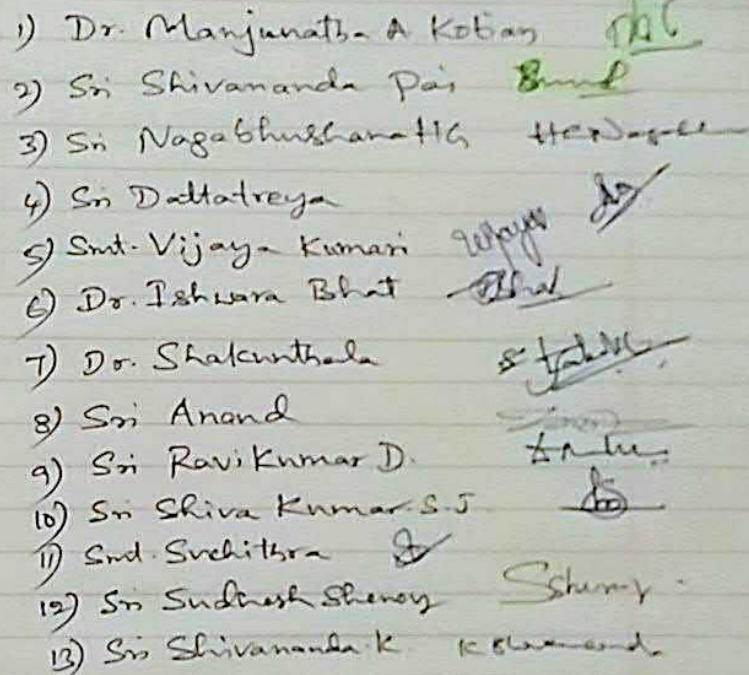 1) Dr. Manjunatha A Kotian
2) Sri Shivananda Pai
3) Sri Nagabhushana HG
4) Sri Dattatreya
5) Smt. Vijaya Kumari Vijaya
6) Dr. Ishwara Bhat Bhat
7) Dr. Shakunthala
8) Sri Anand
9) Sri Ravi Kumar D.
10) Sri Shiva Kumar. S. J
11) Smt. Suchithra
12) Sri Sudhesh Shenoy SShenoy
13) Sri Shivananda. K K Shivananda